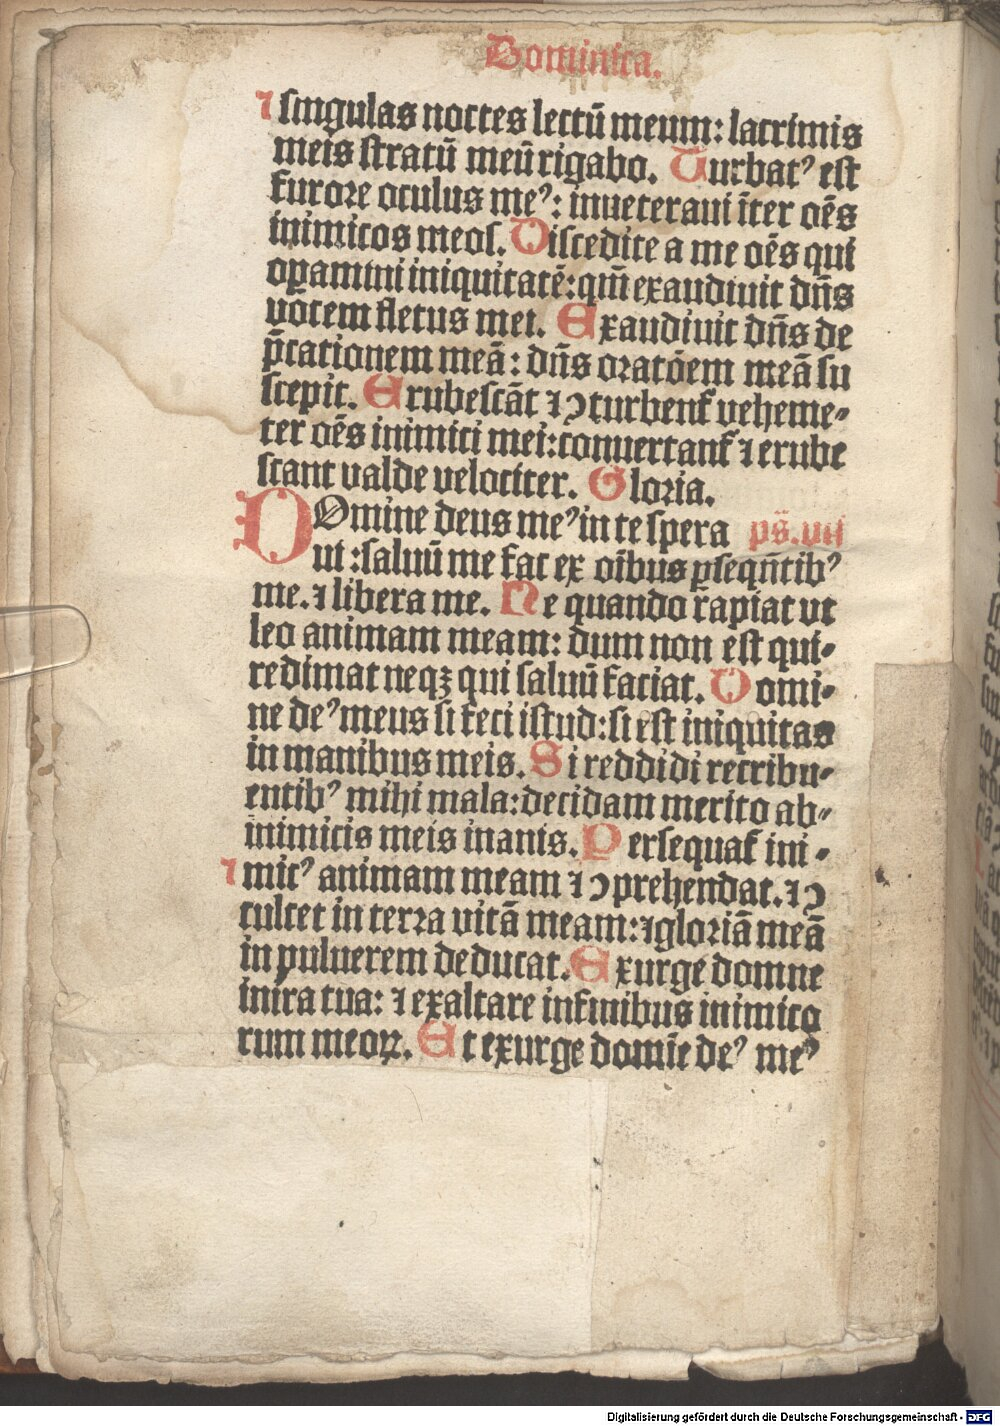 Dominica.
⁊ singulas noctes lectū meum: lacrimis
meis stratū meū rigabo. Turbatꝰ est
furore oculus meꝰ: inueteraui īter oēs
inimicos meos. Discedite a me oēs qui
oꝑamini iniquitatē: qm̄ exaudiuit dn̄s
vocem fletus mei. Exaudiuit dn̄s de
p̄cationem meā: dn̄s oratōem meā su
scepit. Erubescāt ⁊ ꝯturbent᷑ veheme-
ter oēs inimici mei: conuertant᷑ ⁊ erube
scant valde velociter. Gloria.
DOmine deus meꝰ in te spera ps̄. vii
ui: saluū me fac ex oībus ꝑseqn̄tibꝰ
me. ⁊ libera me. Ne quando rapiat vt
leo animam meam: dum non est qui-
redimat neqꝫ qui saluū faciat. Domi-
ne deꝰ meus si feci istud: si est iniquitas
in manibus meis. Si reddidi retribu-
entibꝰ mihi mala: decidam merito ab-
inimicis meis inanis. Persequat᷑ ini-
⁊ micꝰ animam meam ⁊ ꝯprehendat. ⁊ ꝯ
culcet in terra vitā meam: ⁊ gloriā meā
in puluerem deducat. Exurge domne
inira tua: ⁊ exaltare infinibus inimico
rum meoꝝ. Et exurge domīe deꝰ meꝰ
Digitalisierung gefördert durch die Deutsche Forschungsgemeinschaft - DFG